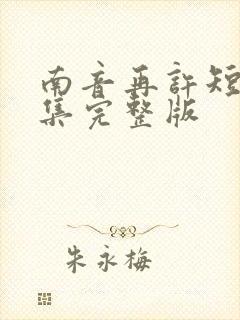 南音再許短
集完整版
朱永梅